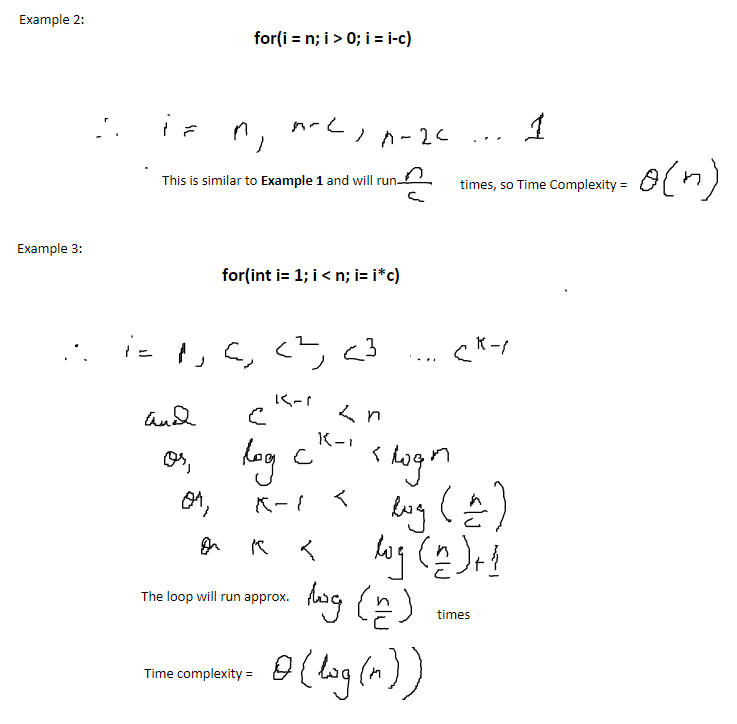 Example 2:
for(i = n; i > 0; i = i-c)
∴ i = n, n-c, n-2c ... 1
This is similar to Example 1 and will run n/c times, so Time Complexity = θ(n)
Example 3:
for(int i= 1; i < n; i= i*c)
∴ i = 1, c, c², c³ .... c^(K-1)
and c^(K-1) < n
or, log c^(K-1) < log n
or, K-1 < log (n/c)
or K < log (n/c)+1
The loop will run approx. log (n/c) times
Time complexity = θ(log(n))